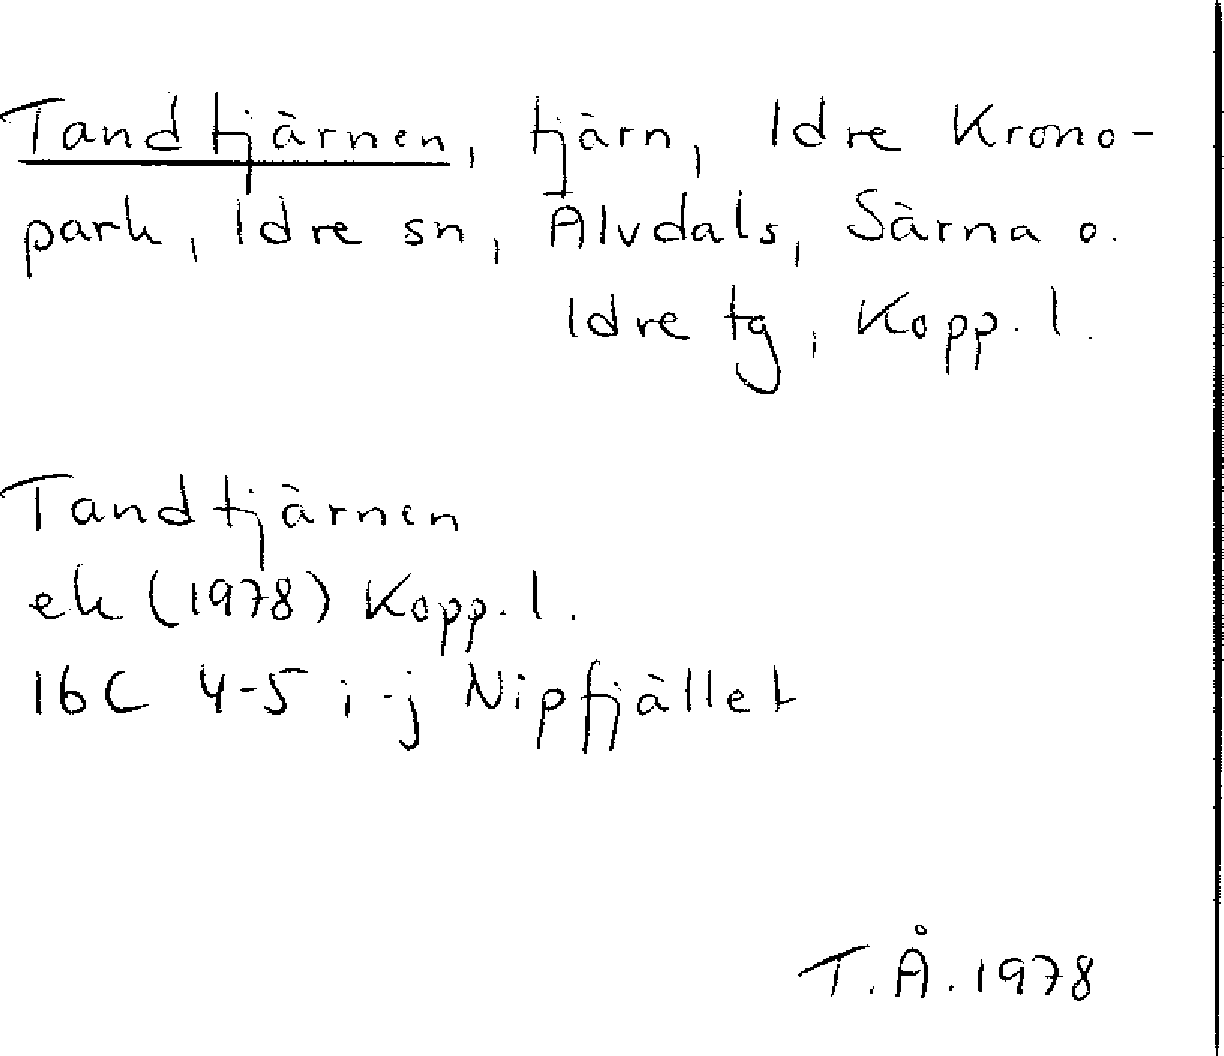 Tandtjärnen, tjärn, Idre Krono-
park, Idre sn, Älvdals, Särna o.
Idre tg, Kopp. l.
Tandtjärnen
ek (1978) Kopp. l.
16C 4-5 i-j Nipfjället
T.Å. 1978